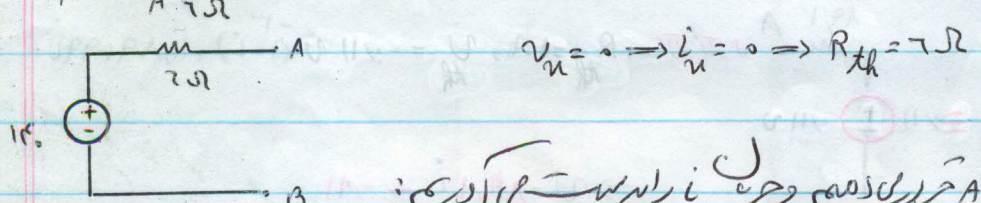 A ۲Ω
A
۲Ω
vₓ = ۰ ⟹ iₓ = ۰ ⟹ R_th = ۲Ω
+
-
۱۲۰
B
A قرار می‌دهیم و جریان i را بدست می‌آوریم: